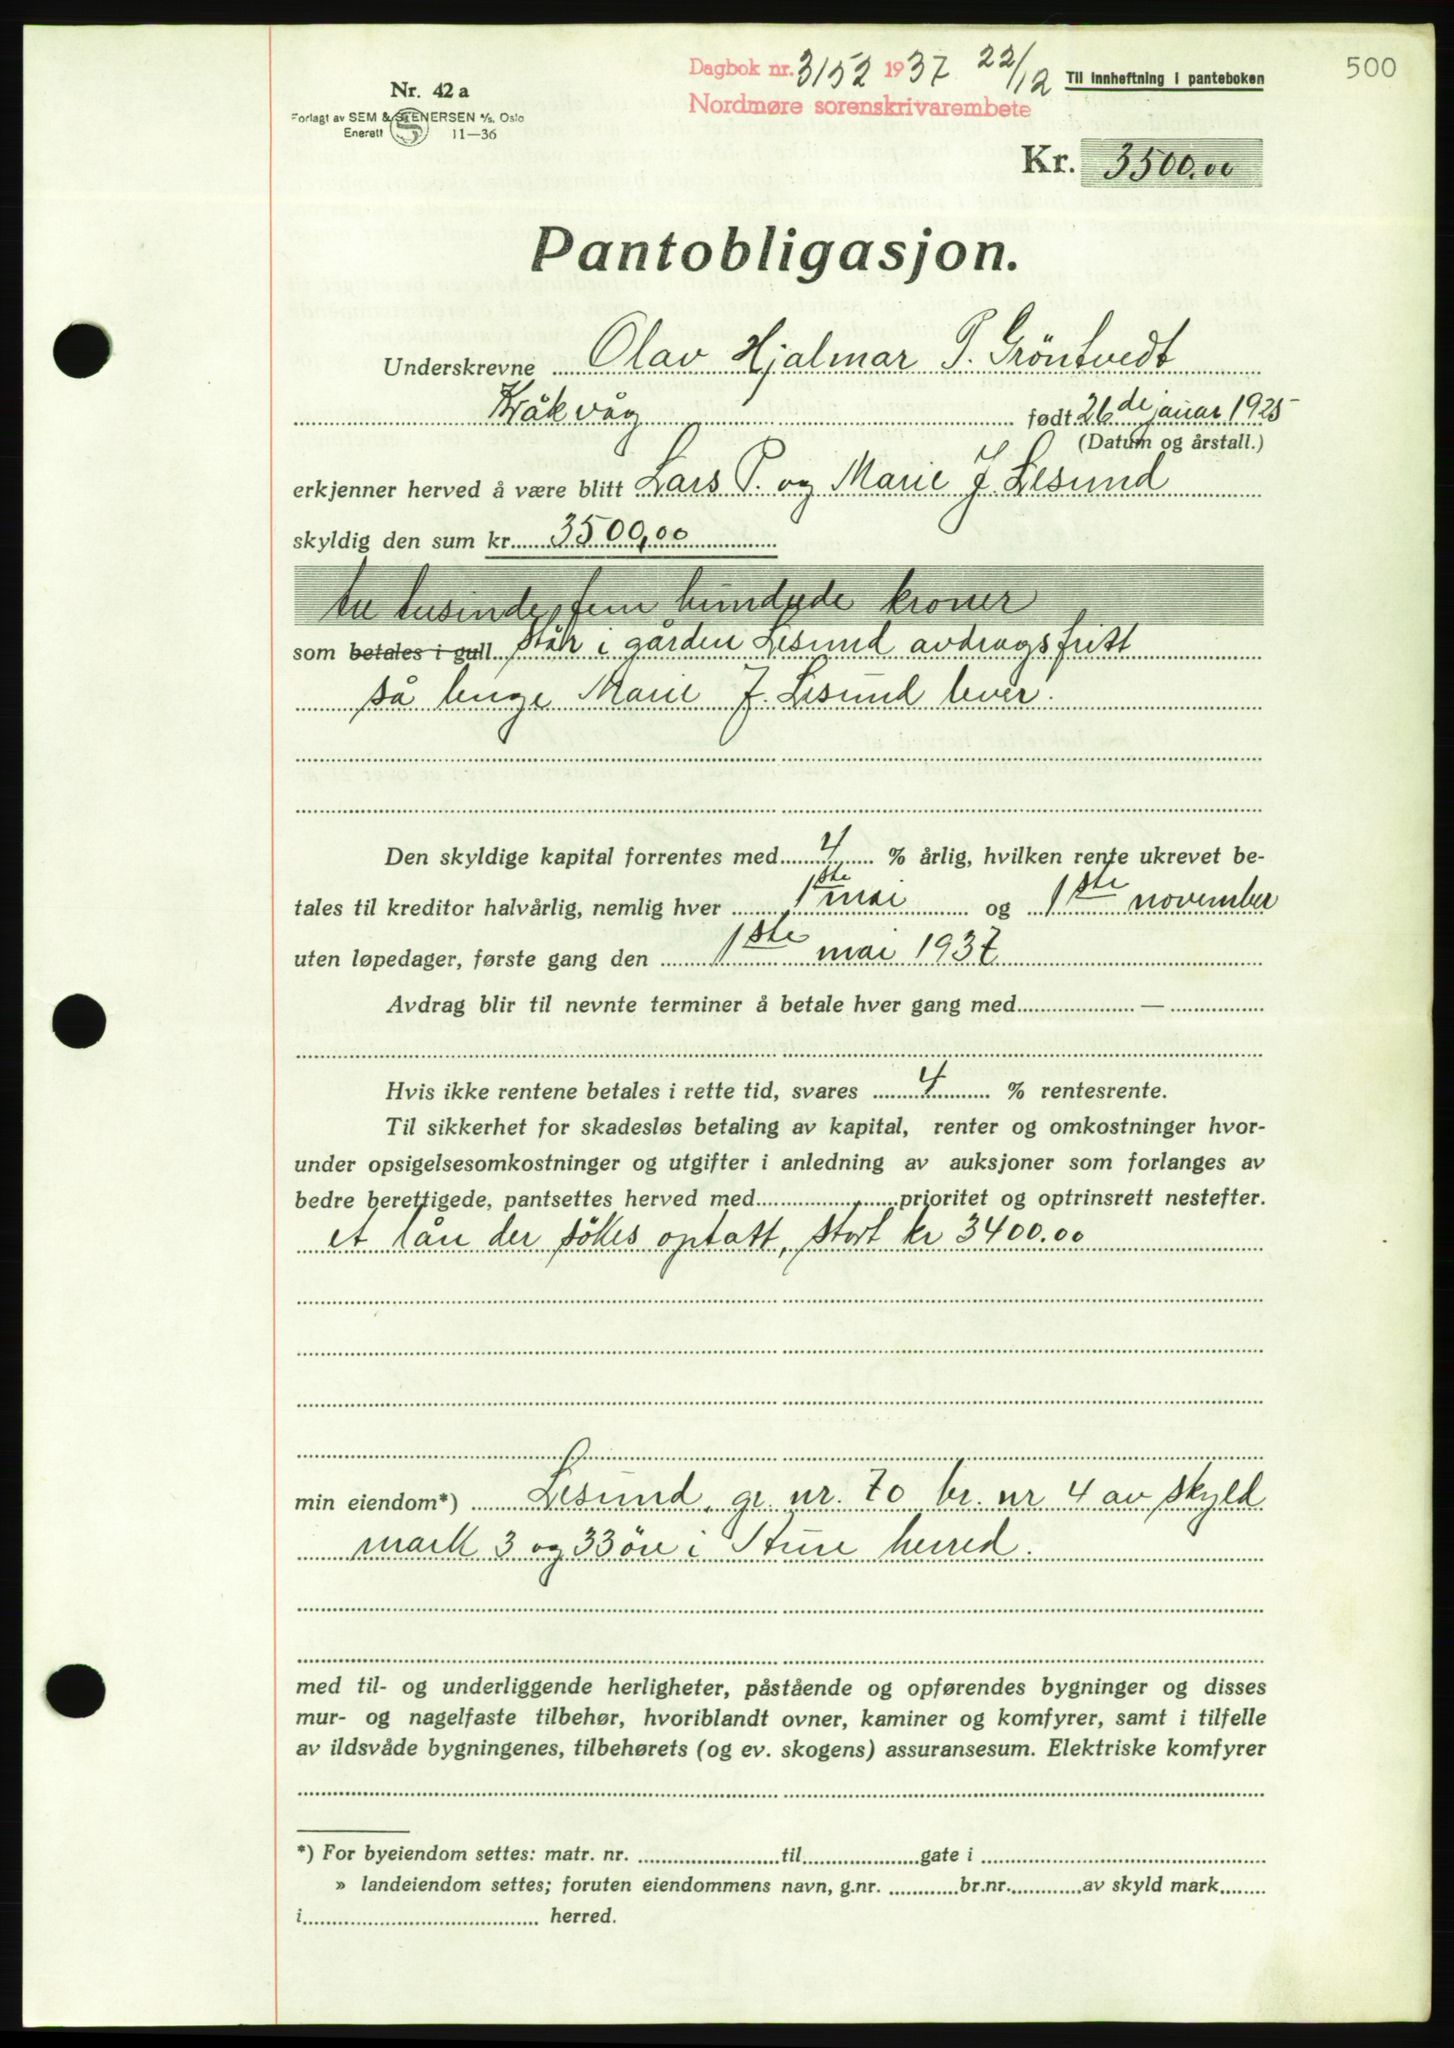 Dagbok nr. 3152 1937 22/12 Til innheftning i panteboken 500
Nordmøre sorenskrivarembete
Nr. 42 a
Forlagt av SEM & STENERSEN A/S. Oslo
Enerett 11—36
Kr. 3500.00
Pantobligasjon.
Underskrevne Olav Hjalmar P. Gröntvedt
Kråkvåg født 26de januar 1925
(Datum og årstall.)
erkjenner herved å være blitt Lars P. og Marie J. Lesund
skyldig den sum kr. 3500,00
tre tusinde fem hundrede kroner
som betales i gull står i gården Lesund avdragsfritt
så lenge Marie J. Lesund lever.
Den skyldige kapital forrentes med 4 % årlig, hvilken rente ukrevet be-
tales til kreditor halvårlig, nemlig hver 1ste mai og 1ste november
uten løpedager, første gang den 1ste mai 1937
Avdrag blir til nevnte terminer å betale hver gang med —
Hvis ikke rentene betales i rette tid, svares 4 % rentesrente.
Til sikkerhet for skadesløs betaling av kapital, renter og omkostninger hvor-
under opsigelsesomkostninger og utgifter i anledning av auksjoner som forlanges av
bedre berettigede, pantsettes herved med prioritet og optrinsrett nestefter.
et lån der søkes optatt, stort kr 3400.00
min eiendom*) Lesund, gr. nr. 70 br. nr 4 av skyld
mark 3 og 33 öre i Sture herred.
med til- og underliggende herligheter, påstående og opførendes bygninger og disses
mur- og nagelfaste tilbehør, hvoriblandt ovner, kaminer og komfyrer, samt i tilfelle
av ildsvåde bygningenes, tilbehørets (og ev. skogens) assuransesum. Elektriske komfyrer
*) For byeiendom settes: matr. nr. til gate i
» landeiendom settes; foruten eiendommens navn, g.nr. br.nr. av skyld mark
i herred.